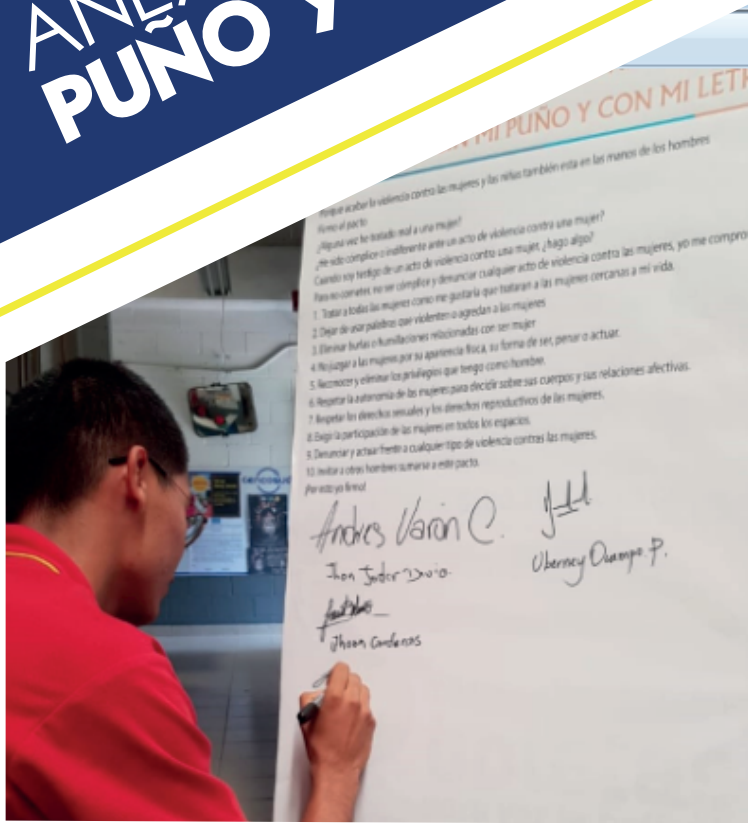 PUÑO Y
MI PUÑO Y CON MI LETR
Porque acabar la violencia contra las mujeres y las niñas también esta en las manos de los hombres
Firmo el pacto
¿Alguna vez he tratado mal a una mujer?
¿He sido cómplice o indiferente ante un acto de violencia contra una mujer?
Cuando soy testigo de un acto de violencia contra una mujer, ¿hago algo?
Para no cometer, no ser cómplice y denunciar cualquier acto de violencia contra las mujeres, yo me compro
1. Tratar a todas las mujeres como me gustaría que trataran a las mujeres cercanas a mi vida.
2. Dejar de usar palabras que violenten o agredan a las mujeres
3. Eliminar burlas o humillaciones relacionadas con ser mujer
4. No juzgar a las mujeres por su apariencia física, su forma de ser, pensar o actuar.
5. Reconocer y eliminar los privilegios que tengo como hombre.
6. Respetar la autonomía de las mujeres para decidir sobre sus cuerpos y sus relaciones afectivas.
7. Respetar los derechos sexuales y los derechos reproductivos de las mujeres.
8. Exigir la participación de las mujeres en todos los espacios.
9. Denunciar y actuar frente a cualquier tipo de violencia contras las mujeres.
10. Invitar a otros hombres sumarse a este pacto.
¡Por esto yo firmo!
Andres Varón C.
Uberney Ocampo. P.
Jhon
Jhoan Cardenas
cencosud